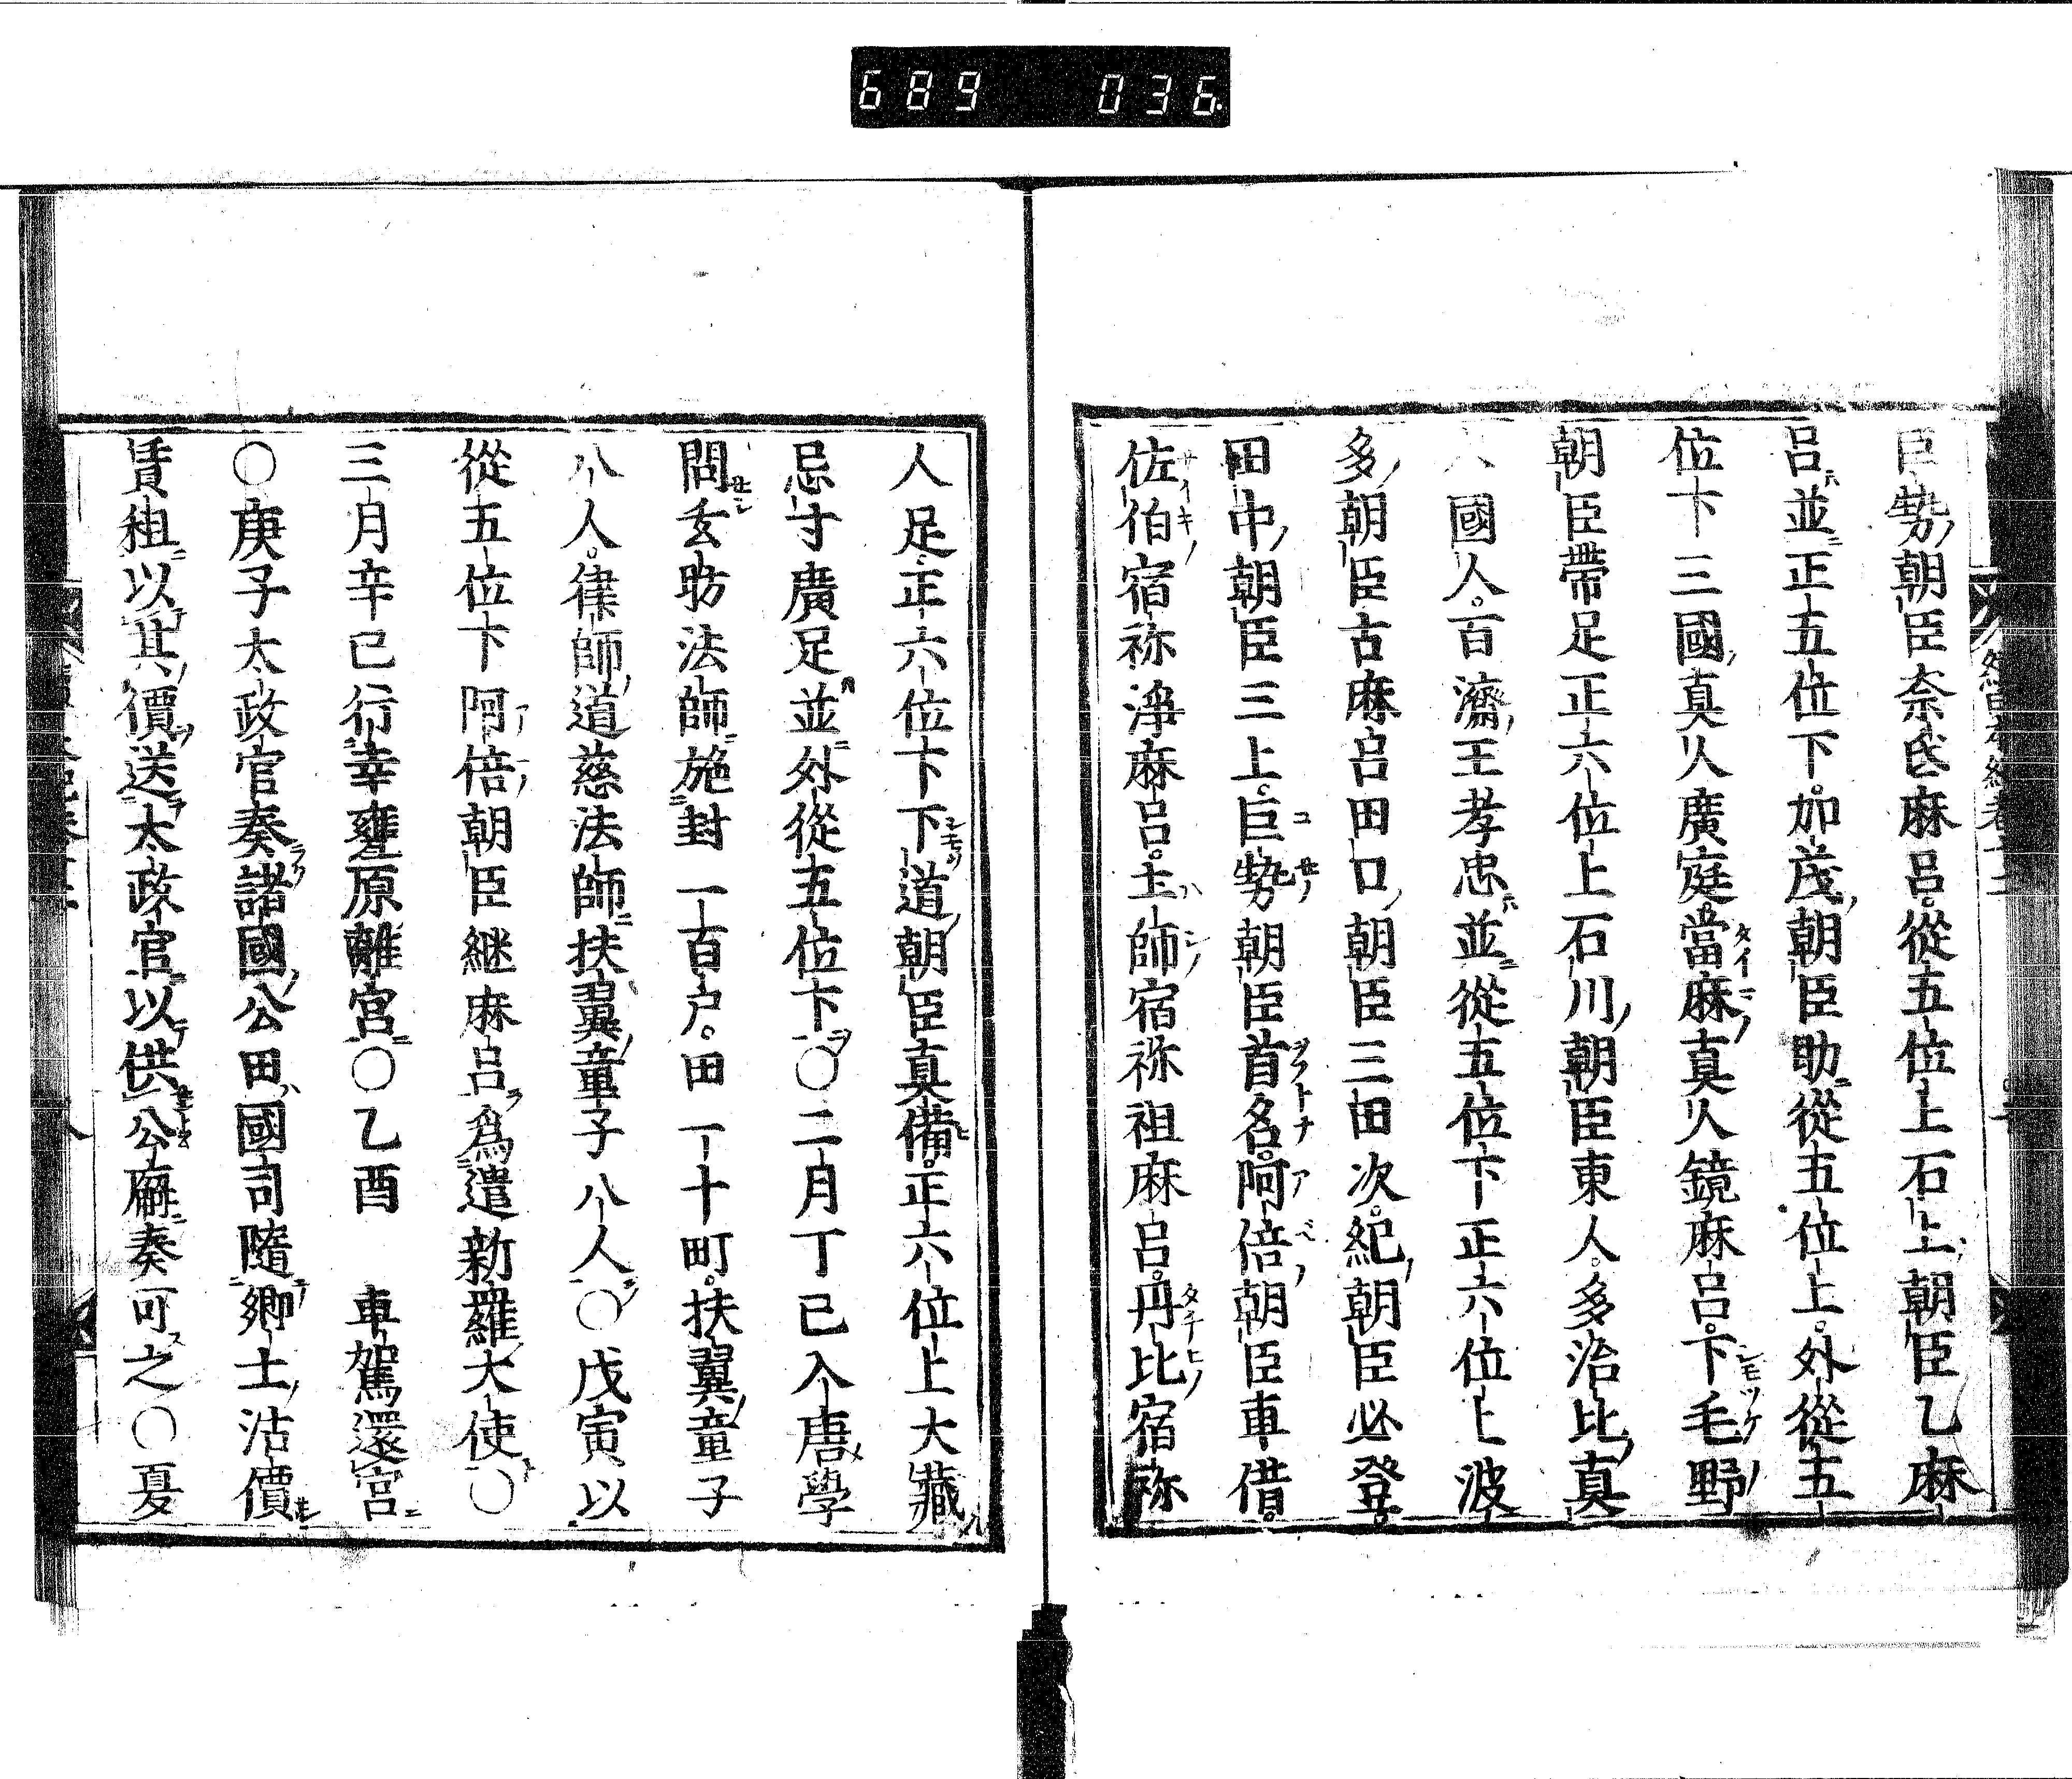 689 036
巨勢朝臣奈氐麻呂從五位上石上朝臣乙麻
呂並正五位下加茂朝臣助從五位上外從五
位下三國真人廣庭當麻真人鏡麻呂下毛野
朝臣帶足正六位上石川朝臣東人多治比真
人國人百濟王孝忠並從五位下正六位上波
多朝臣古麻呂田口朝臣三田次紀朝臣必登
田中朝臣三上巨勢朝臣首名阿倍朝臣車借
佐伯宿祢淨麻呂土師宿祢祖麻呂丹比宿祢
人足正六位下下道朝臣真備正六位上大藏
忌寸廣足並外從五位下〇二月丁巳入唐學
問玄昉法師施封一百戶田一十町扶翼童子
八人律師道慈法師扶翼童子八人〇戊寅以
從五位下阿倍朝臣継麻呂爲遣新羅大使〇
三月辛巳行幸甕原離宮〇乙酉 車駕還宮
〇庚子太政官奏諸國公田國司隨鄉土沽價
賃租以其價送太政官以供公廨奏可之〇夏